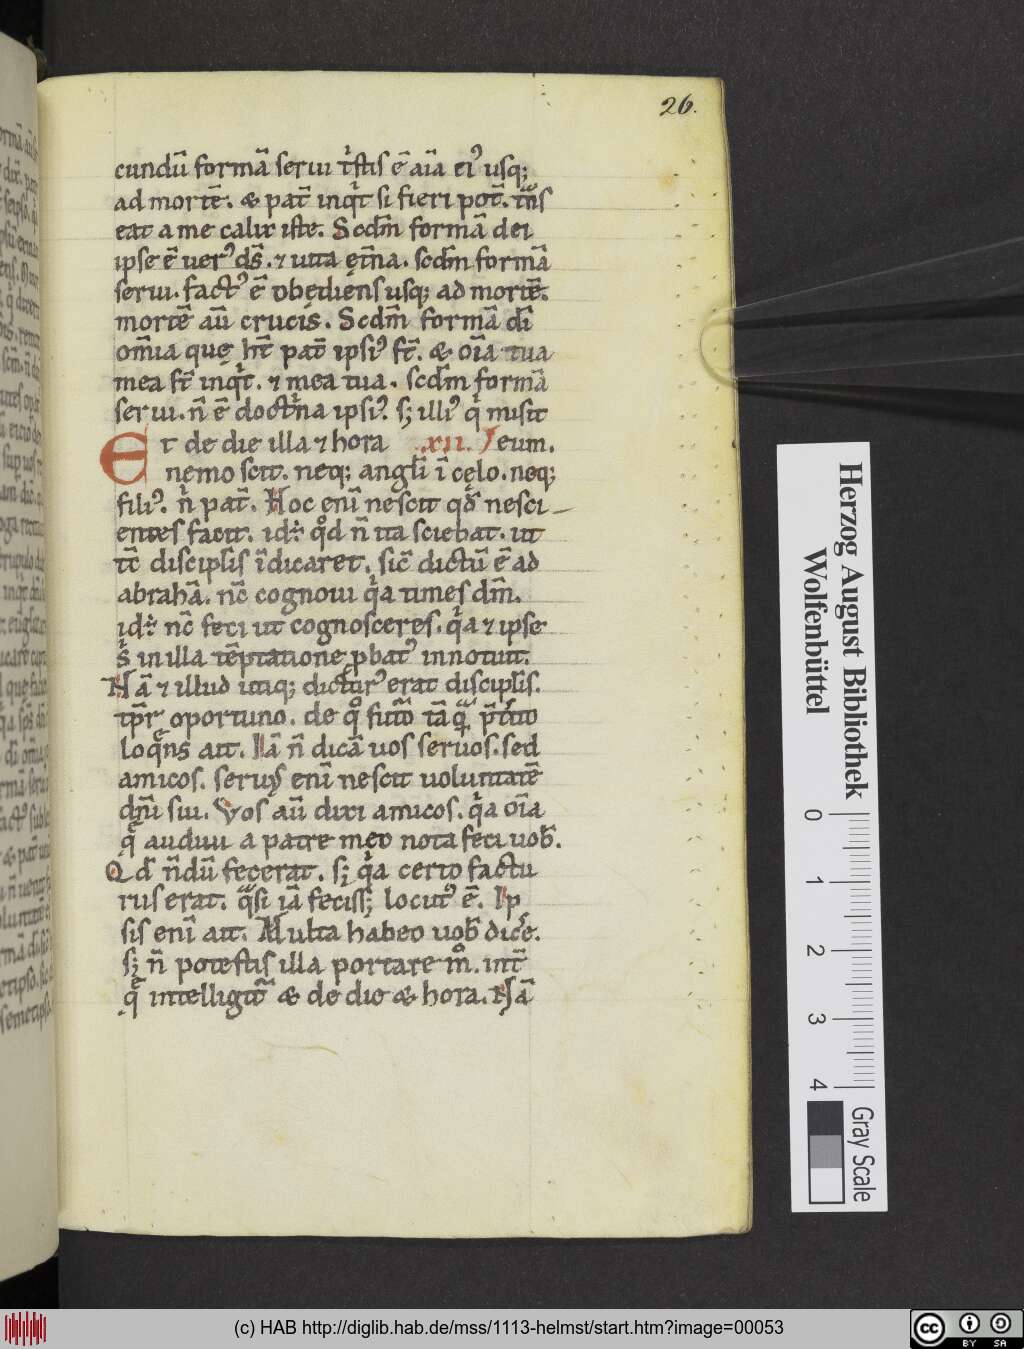 26.
cundū formā serui t͛stis ē aīa ei᾽ usq;
ad mortē. & pat̄ inq͛t si fieri pot̄. t͛ns
eat a me calix iste. Scdm̄ formā dei
ipse ē uer᾽ ds̄. ⁊ uita et̄na. scdm̄ formā
serui. fact᾽ ē obediens usq; ad mortē.
mortē aū crucis. Scdm̄ formā dī
om̄ia que ht̄ pat̄ ipsi᾽ st̄. & oīa tua
mea st̄ inq͛t. ⁊ mea tua. scdm̄ formā
serui. n̄ ē doct͛na ipsi᾽. s; illi᾽ q͛ misit
Et de die illa ⁊ hora .xii. eum.
nemo scit. neq; angl̄i ī celo. neq;
fili᾽. n͛ pat̄. Hoc enī nescit qd̄ nesci
entes facit. id÷ qd n̄ ita sciebat. ut
tc̄ discipl̄is īdicaret. sic̄ dictū ē ad
abrahā. nc̄ cognoui q͛a times dm̄.
id÷ nc̄ feci ut cognosceres. q͛a ⁊ ipse
s͛ in illa tēptatione pbat᾽ innotuit.
Nā ⁊ illud utiq; dictur᾽ erat discipl̄is.
tp̄r oportuno. de q° futō tāq̄ p̄t͛ito
loq̄ns ait. Nā n̄ dicā uos seruos. sed
amicos. seruus enī nescit uoluntatē
dn̄i sui. Vos aū dixi amicos. q͛a oīa
q̄ audiui a patre meo nota feci uob̄.
Qd̄ n̄dū fecerat. s; q͛a certo factu
rus erat. q̄si iā feciss; locut᾽ ē. Ip
sis enī ait. Multa habeo uob̄ dic̄e.
s; n̄ potestis illa portare m°. int̄
q̄ intelligit᷑ & de die & hora. Nā
Herzog August Bibliothek
Wolfenbüttel
0 1 2 3 4
Gray Scale
(c) HAB http://diglib.hab.de/mss/1113-helmst/start.htm?image=00053
cc BY SA